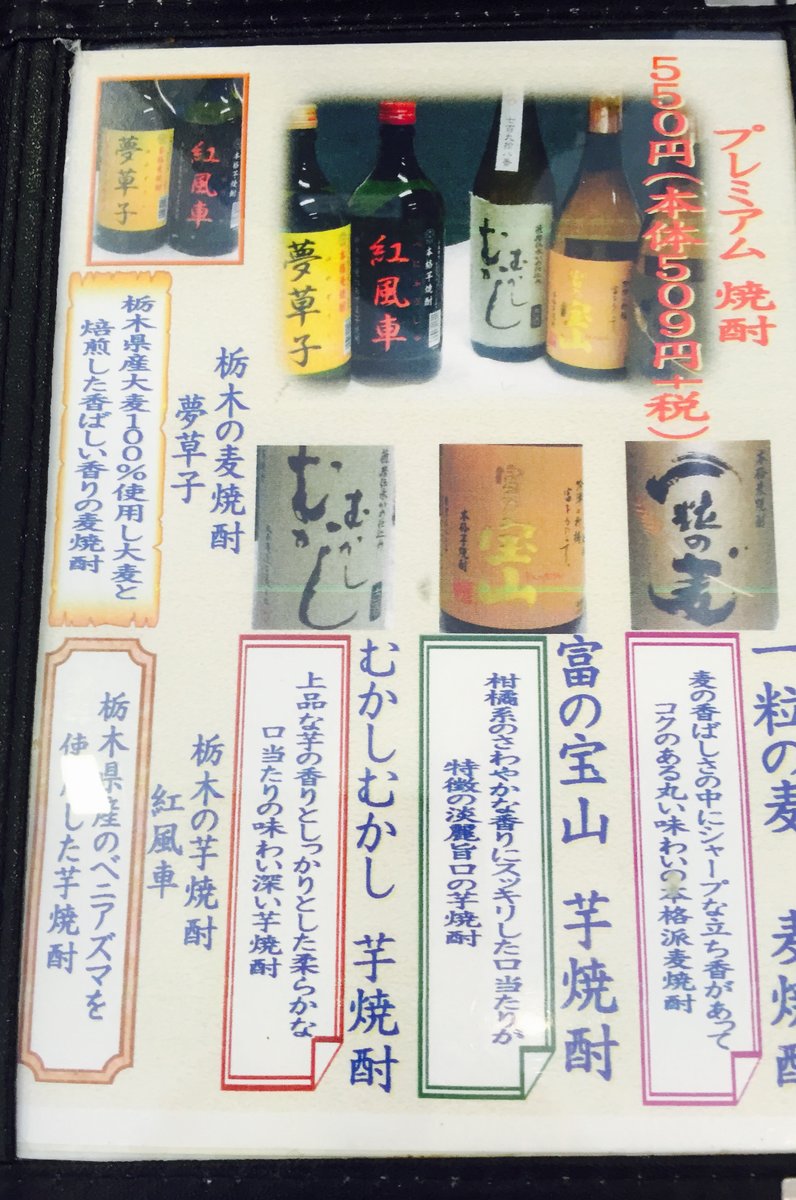 プレミアム 焼酎
550円(本体509円+税)
七百九拾八番
むかし
むかし
富乃宝山
本格芋焼酎
紅風車
本格麦焼酎
夢草子
本格芋焼酎
紅風車
夢草子
本格麦焼酎
一粒の麦
富乃宝山
本格芋焼酎
むかし
むかし
一粒の麦 麦焼
麦の香ばしさの中にシャープな立ち香があって
コクのある丸い味わいの本格派麦焼酎
富の宝山 芋焼酎
柑橘系のさわやかな香りにスッキリした口当たりが
特徴の淡麗旨口の芋焼酎
むかしむかし 芋焼酎
上品な芋の香りとしっかりとした柔らかな
口当たりの味わい深い芋焼酎
栃木の麦焼酎
夢草子
栃木県産大麦100%使用し大麦と
焙煎した香ばしい香りの麦焼酎
栃木の芋焼酎
紅風車
栃木県産のベニアズマを
使用した芋焼酎